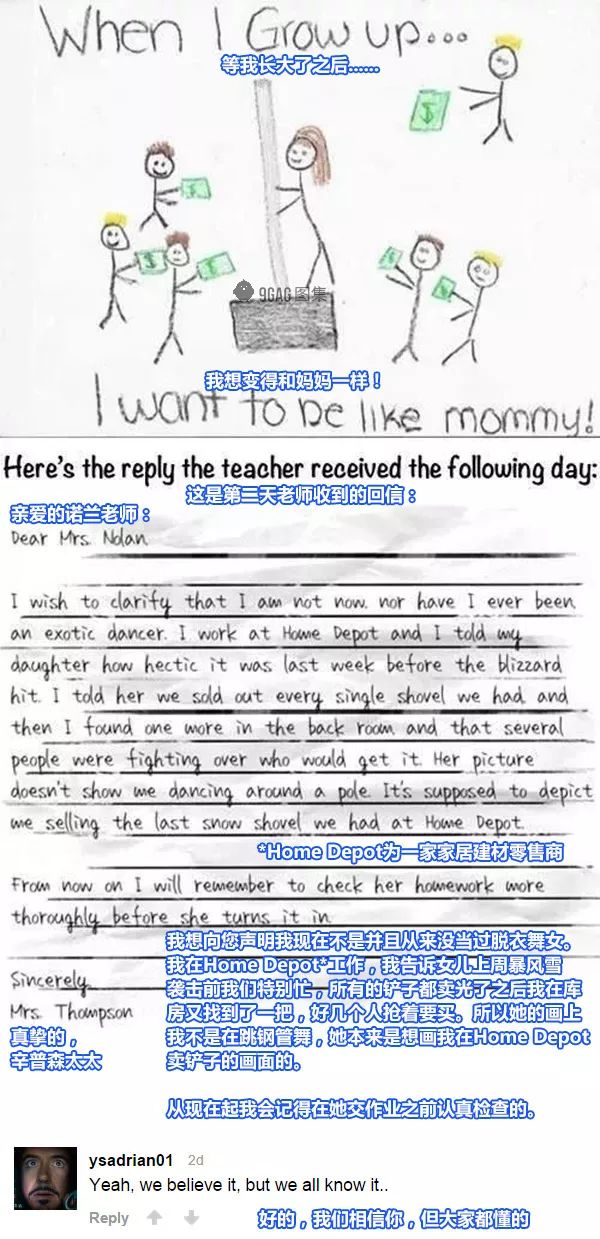 When I Grow up...
等我长大了之后……
9GAG图集
我想变得和妈妈一样！
I want to be like mommy!
Here's the reply the teacher received the following day:
这是第二天老师收到的回信：
亲爱的诺兰老师：
Dear Mrs. Nolan
I wish to clarify that I am not now, nor have I ever been
an exotic dancer. I work at Home Depot and I told my
daughter how hectic it was last week before the blizzard
hit. I told her we sold out every single shovel we had and
then I found one more in the back room and that several
people were fighting over who would get it. Her picture
doesn't show me dancing around a pole. It's supposed to depict
me selling the last snow shovel we had at Home Depot.
*Home Depot为一家家居建材零售商
From now on I will remember to check her homework more
thoroughly before she turns it in
我想向您声明我现在不是并且从来没当过脱衣舞女。
我在Home Depot*工作，我告诉女儿上周暴风雪
袭击前我们特别忙，所有的铲子都卖光了之后我在库
房又找到了一把，好几个人抢着要买。所以她的画上
我不是在跳钢管舞，她本来是想画我在Home Depot
卖铲子的画面的。
从现在起我会记得在她交作业之前认真检查的。
Sincerely
Mrs. Thompson
真挚的，
辛普森太太
ysadrian01 2d
Yeah, we believe it, but we all know it..
Reply
好的，我们相信你，但大家都懂的